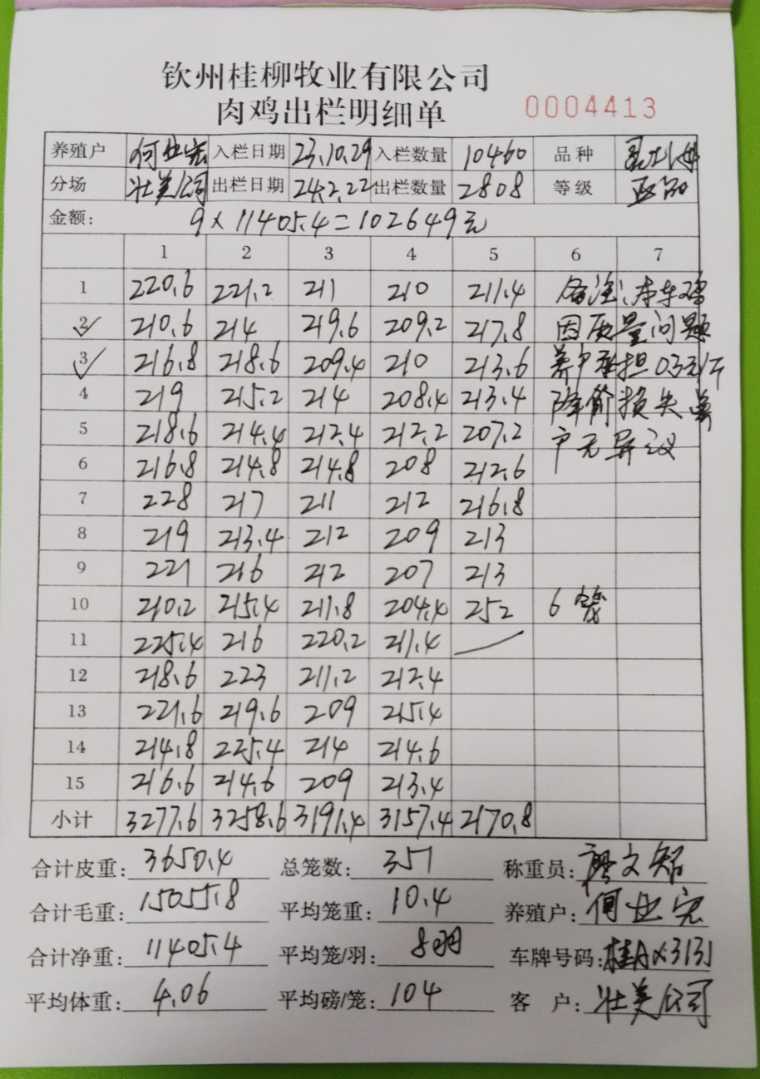 钦州桂柳牧业有限公司
肉鸡出栏明细单 0004413
养殖户 何业宏 入栏日期 23.10.29 入栏数量 10460 品种
分场 壮美公司 出栏日期 24.2.22 出栏数量 2808 等级
金额: 9×11405.4=102649元
1 2 3 4 5 6 7
1 220.6 221.2 211 210 211.4 备注:本车鸡
2 210.6 214 219.6 209.2 217.8 因质量问题
3 216.8 218.6 209.4 210 213.6 养户承担0.3元/斤
4 219 215.2 214 208.4 213.4 降价损失养
5 218.6 214.4 212.4 212.2 207.2 户无异议
6 216.8 214.8 214.8 208 212.6
7 228 217 211 212 216.8
8 219 213.4 212 209 213
9 221 216 212 207 213
10 210.2 215.4 211.8 204.4 252 6笼
11 225.4 216 220.2 211.4
12 218.6 223 211.2 212.4
13 221.6 219.6 209 215.4
14 214.8 225.4 214 214.6
15 216.6 214.6 209 213.4
小计 3277.6 3258.6 3191.4 3157.4 2170.8
合计皮重: 3650.4 总笼数: 351 称重员: 廖文铭
合计毛重: 15055.8 平均笼重: 10.4 养殖户: 何业宏
合计净重: 11405.4 平均笼/羽: 8羽 车牌号码: 桂AX3131
平均体重: 4.06 平均磅/笼: 104 客户: 壮美公司